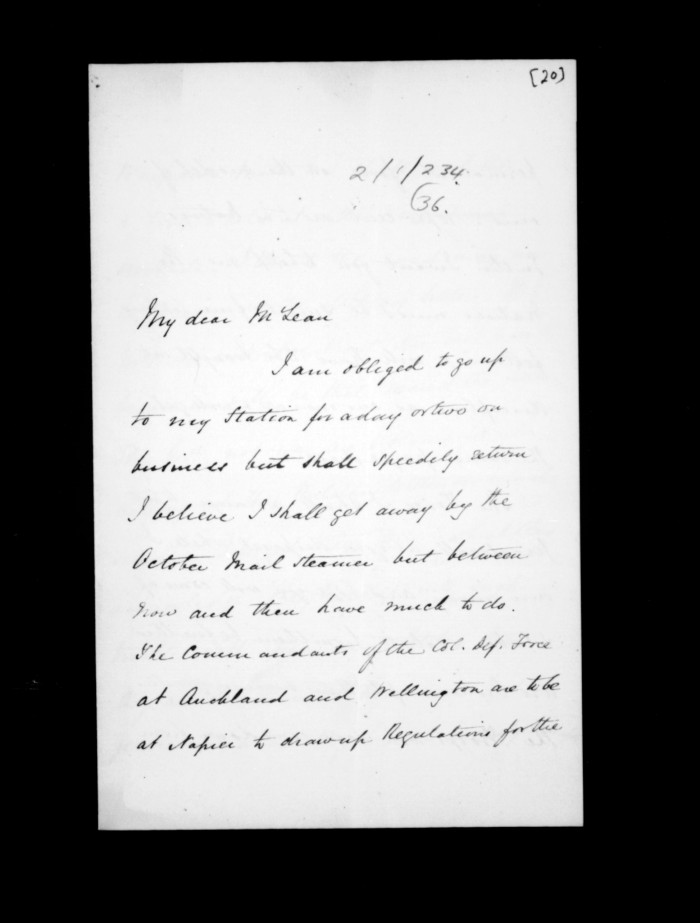 [20]
2/1/234.
(36.
My dear McLean
I am obliged to go up
to my Station for a day or two on
business but shall speedily return
I believe I shall get away by the
October Mail steamer but between
now and then have much to do.
The Commandants of the Col. Def. Force
at Auckland and Wellington are to be
at Napier to draw up Regulations for the